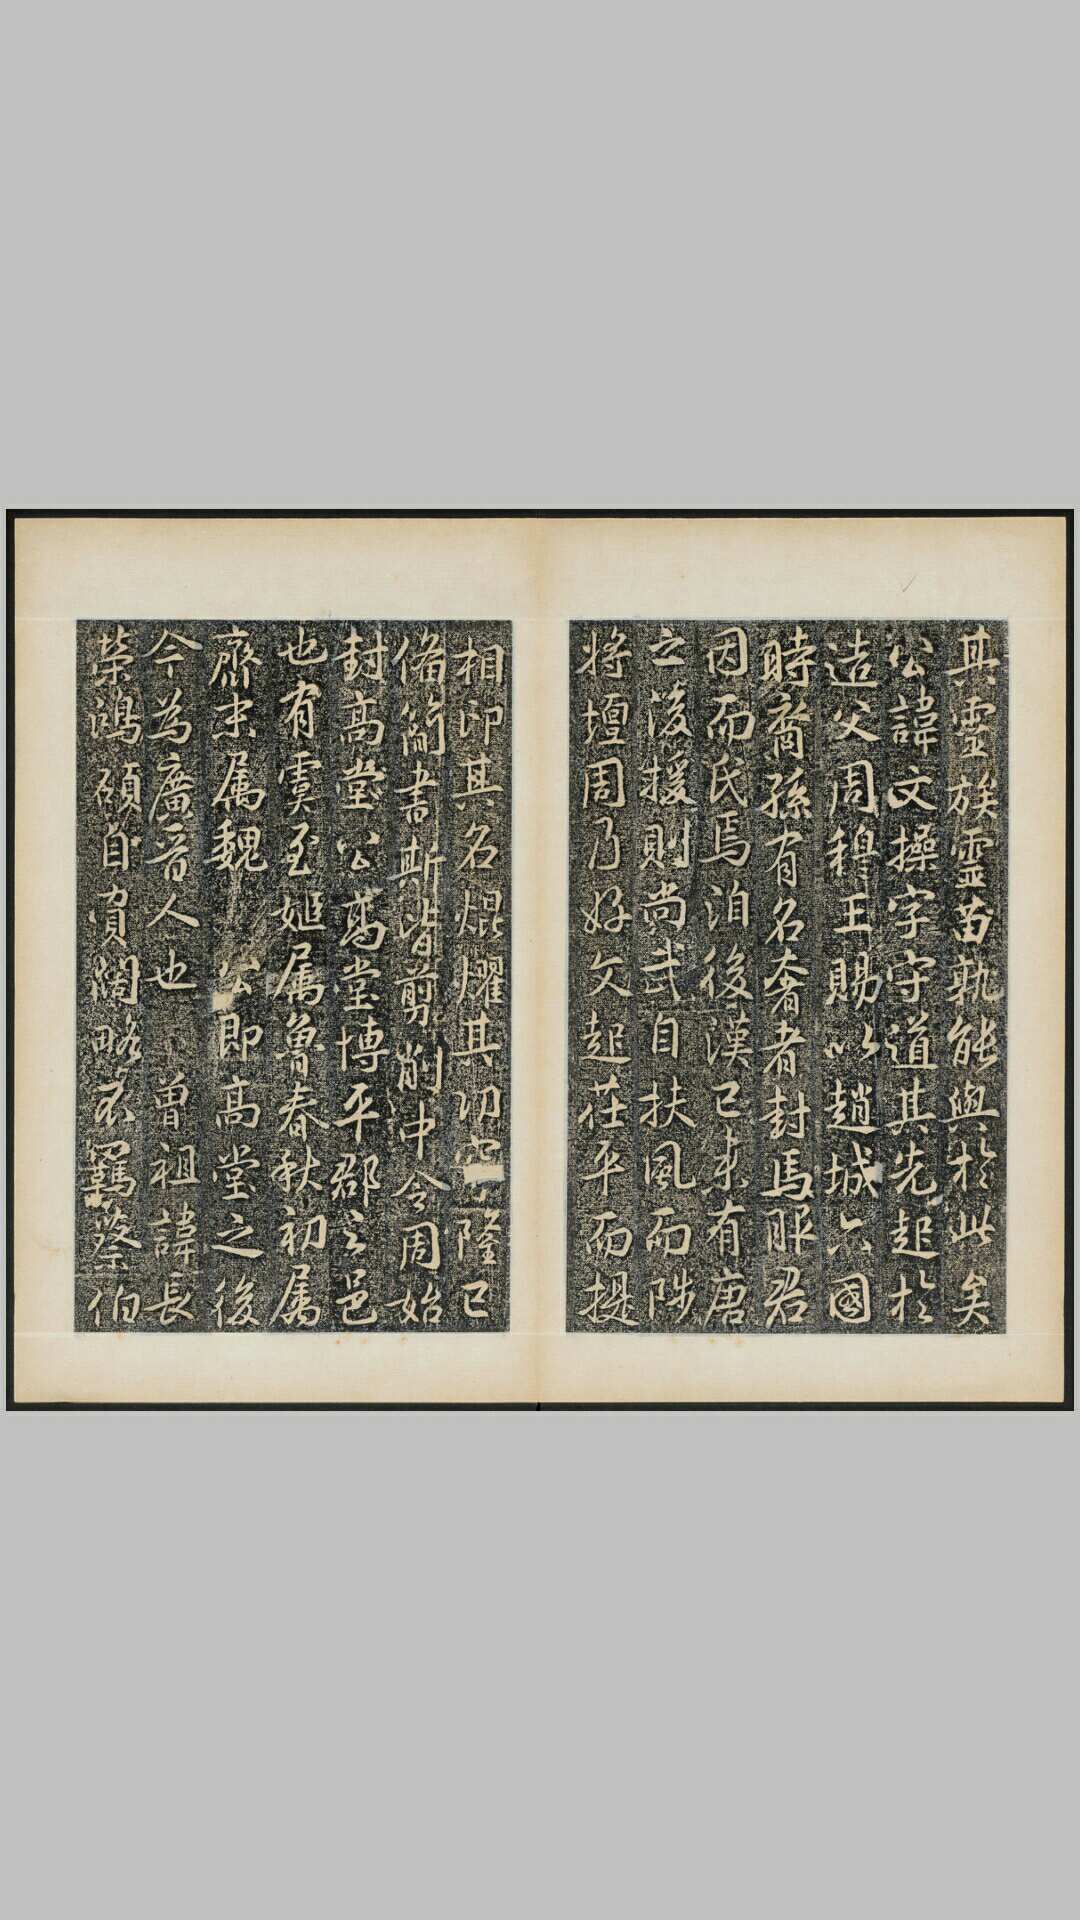 其靈族靈苗孰能與於此矣
公諱文操字守道其先起於
造父周穆王賜以趙城六國
時裔孫有名奢者封馬服君
因而氏焉洎後漢已来有唐
之後援則尚武自扶風而陟
將壇周乃好文起茌平而提
相印其名焜燿其功隆已
備簡書斯皆前削中令周始
封高堂公高堂博平郡之邑
也有虞至姬属魯春秋初属
齊末属魏公即高堂之後
今為廣晉人也曾祖諱長
榮鴻碩自賁闊略不羈蔡伯